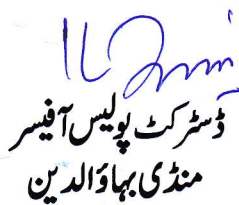 ڈسٹرکٹ پولیس آفیسر
منڈی بہاؤالدین